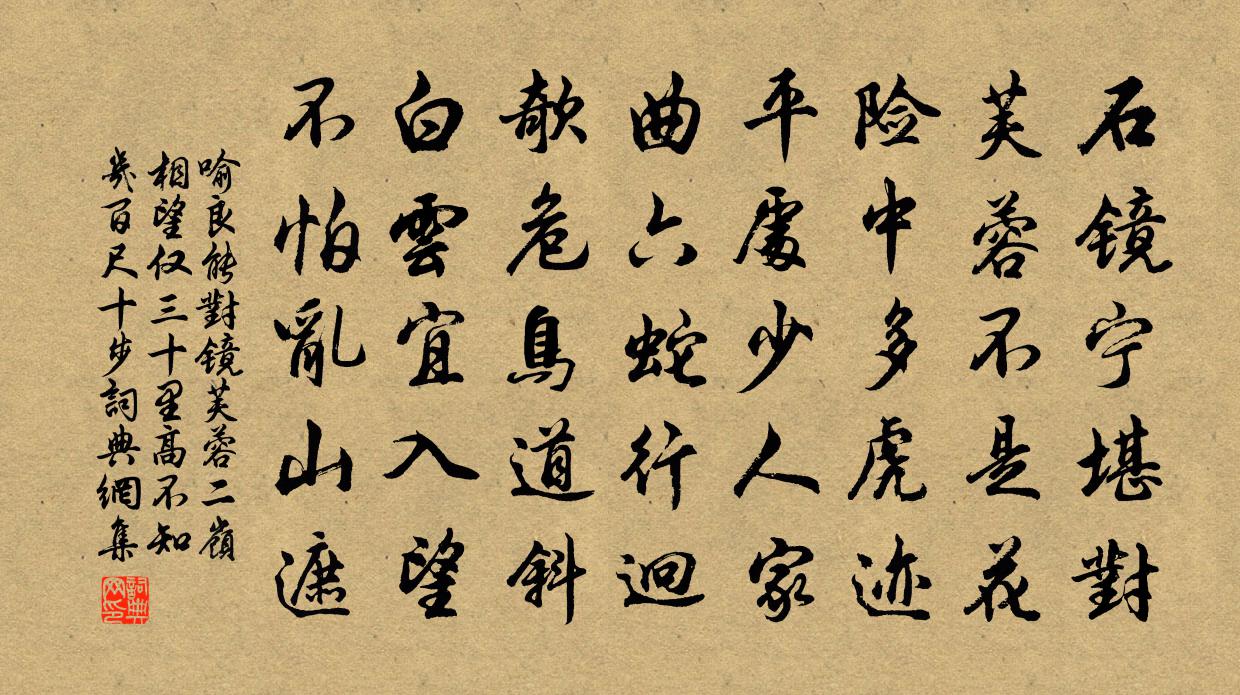 石镜宁堪對
芙蓉不是花
险中多虎迹
平處少人家
曲六蛇行迴
欹危鳥道斜
白雲宜入望
不怕亂山遮
喻良能對镜芙蓉二嶺
相望仅三十里高不知
幾百尺十步詞典網集
詞典
网印